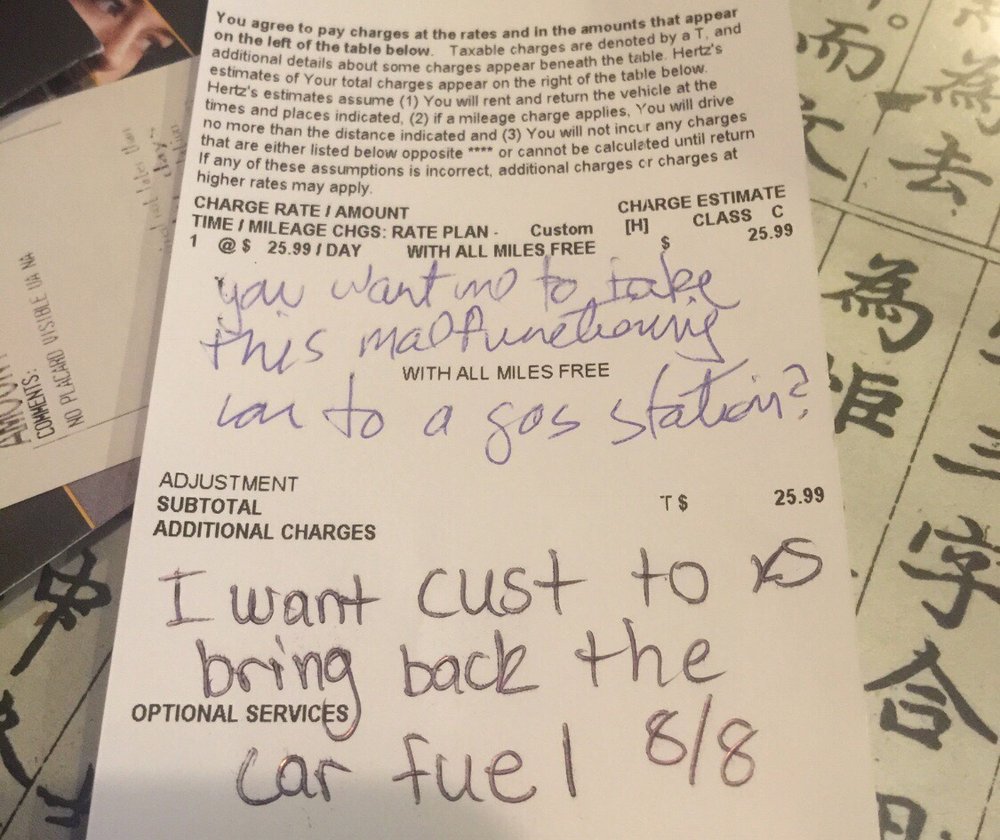 You agree to pay charges at the rates and in the amounts that appear
on the left of the table below. Taxable charges are denoted by a T, and
additional details about some charges appear beneath the table. Hertz's
estimates of Your total charges appear on the right of the table below.
Hertz's estimates assume (1) You will rent and return the vehicle at the
times and places indicated, (2) if a mileage charge applies, You will drive
no more than the distance indicated and (3) You will not incur any charges
that are either listed below opposite **** or cannot be calculated until return
If any of these assumptions is incorrect, additional charges or charges at
higher rates may apply.
CHARGE RATE / AMOUNT CHARGE ESTIMATE
TIME / MILEAGE CHGS: RATE PLAN - Custom [H] CLASS C
1 @ $ 25.99 / DAY WITH ALL MILES FREE $ 25.99
you want me to take
this malfunctioning
WITH ALL MILES FREE
car to a gas station?
ADJUSTMENT
SUBTOTAL T $ 25.99
ADDITIONAL CHARGES
I want cust to
bring back the
OPTIONAL SERVICES
car fuel 8/8
COMMENTS:
NO PLACARD VISIBLE VIA NA
而
文
為
去
為
姫
三
字
合